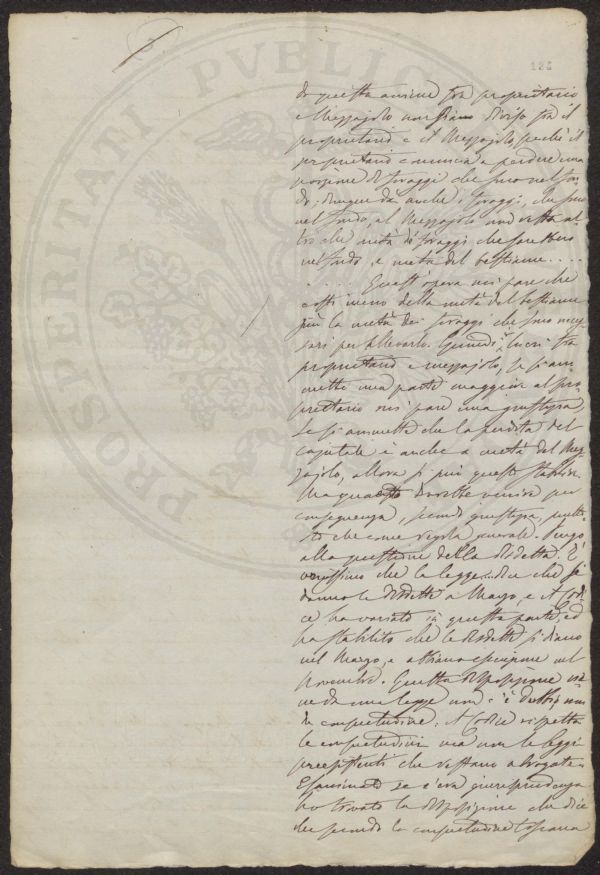 3
134
da questa anime fra proprietario
e Mezzajolo non siano diviso fra il
proprietario e il Mezzajolo, perché il
proprietario comincia a perdere una
porzione di foraggi che sono nel fon-
do: dunque dà anche i foraggi, che sono
nel fondo, al Mezzajolo non resta al-
tro che metà di foraggi che sarebbero
nel fondo, e metà del bestiame....
..... Quest'opera mi pare che
costi meno della metà del bestiame
più la metà dei foraggi che sono neces-
sari per allevarlo. Quindi i lucri fra
proprietario e mezzajolo, se si am-
mette una parte maggiore al pro-
prietario mi pare una giustezza,
se si ammette che la perdita del
capitale è anche a metà del Mez-
zajolo, allora si può questo stabilire.
Ma questo dovrebbe venire per
conseguenza, secondo giustezza, piutto-
sto che come regola generale. Vengo
alla questione della disdetta. È
verissimo che la legge dice che si
danno le disdette a Marzo, e il Codi-
ce ha variato in questa parte, ed
ha stabilito che le disdette si diano
nel Marzo, e abbiano esecuzione nel
Novembre. Questa disposizione vie-
ne da una legge non c'è dubbio, non
da consuetudine; il Codice rispetta
le consuetudini ma non le leggi
preesistenti che restano abrogate.
Esaminato se c'era giureprudenza
ho trovato la disposizione che dice
che secondo la consuetudine toscana
PROSPERITATI PVBLICAE